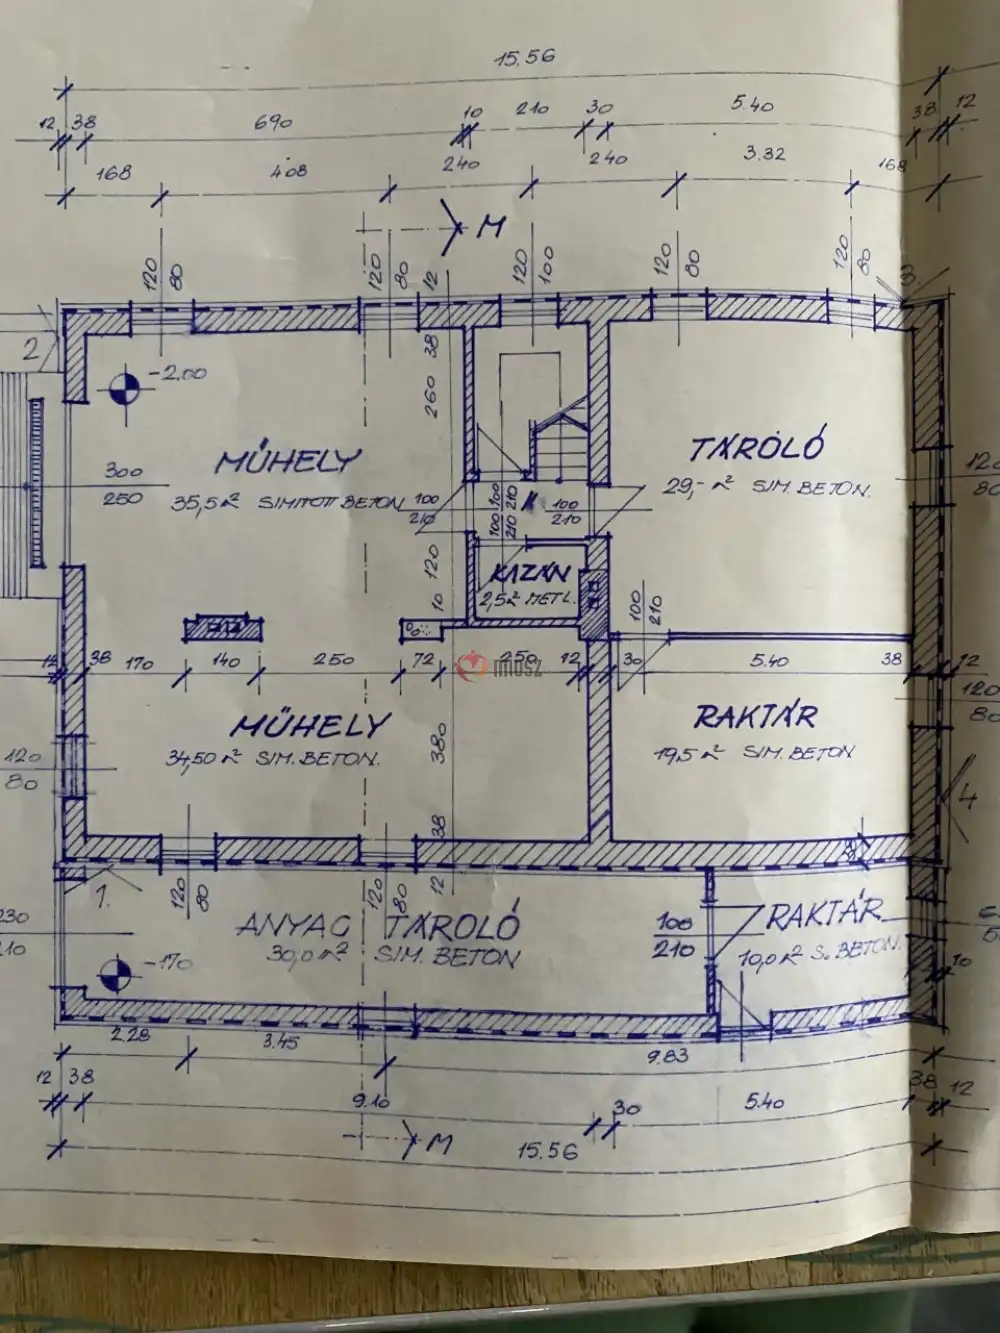 15.56
12 38 690 10 210 30 5.40 38 12
168 408 240 240 3.32 168
M
120 80 120 80 12 120 100 120 80 120 80
3
2
38
-2.00
260
MŰHELY
TÁROLÓ
300
250
35,5 m² SIMITOTT BETON
100
210
100
210
100
210
100
210
29,- m² SIM. BETON.
120
80
120
KAZÁN
2,5 m² METL.
10
100
210
12 38 170 140 250 72 250 12 30 5.40 38 12
imosz
120
80
MŰHELY
RAKTÁR
34,50 m² SIM. BETON.
380
19,5 m² SIM. BETON
120
80
4
38
1.
120
80
120
80
12
230
210
ANYAG TÁROLÓ
30,0 m² SIM. BETON
100
210
RAKTÁR
10,0 m² S. BETON.
-170
10
2.28 3.45 9.83
12 38 9.10 30 5.40 38 12
M
15.56